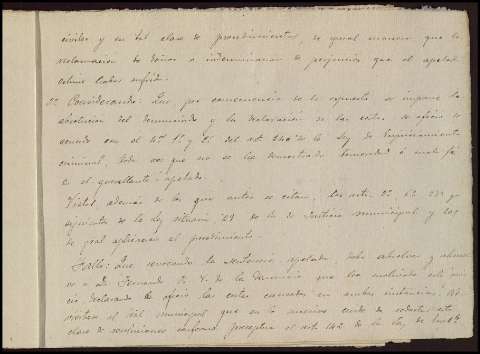 civiles y en tal clase de procedimientos, de igual manera que la
reclamacion de daños e indemnizacion de perjuicios que el apelado
estime haber sufrido.
2º Considerando: Que por consecuencia de lo expuesto se impone la
absolucion del denunciado y la declaracion de las costas de oficio de
acuerdo con el nº 1º y 2º del art 240 de la Ley de Enjuiciamiento
criminal, toda vez que no se ha demostrado temeridad ó mala fé
en el querellante apelado.
Vistos además de los que antes se citan, los arts. 2º 6º
siguientes de la Ley de Justicia municipal y los
de gral aplicacion al procedimiento.
Fallo: Que revocando la sentencia apelada, debo absolver y absuel-
vo a D. Fernando de la denuncia que ha motivado este jui-
cio declarando de oficio las costas causadas en ambas instancias
al municipal que en lo sucesivo cuide de redactar esta
clase de resoluciones conforme preceptua el art 142 de la Ley de Enjto